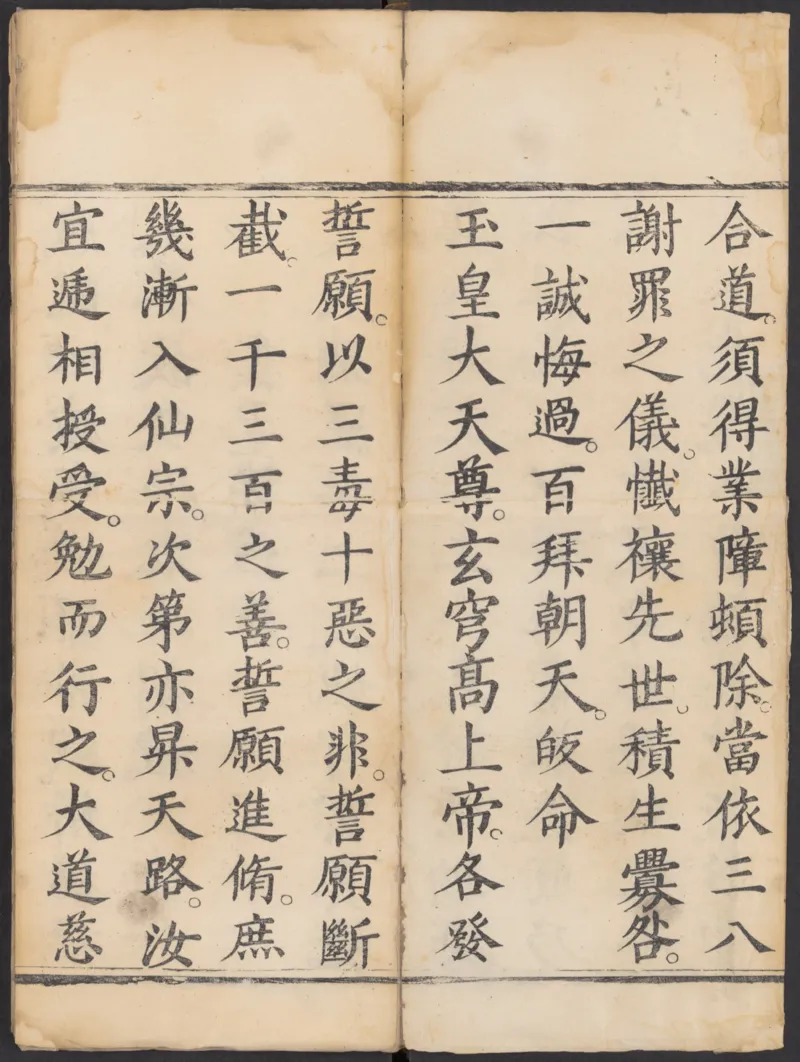 合道。須得業障頓除。當依三八
謝罪之儀。懺禳先世。積生釁咎。
一誠悔過。百拜朝天。皈命
玉皇大天尊。玄穹高上帝。各發
誓願。以三毒十惡之非。誓願斷
截。一千三百之善。誓願進脩。庶
幾漸入仙宗。次第亦昇天路。汝
宜遞相授受。勉而行之。大道慈